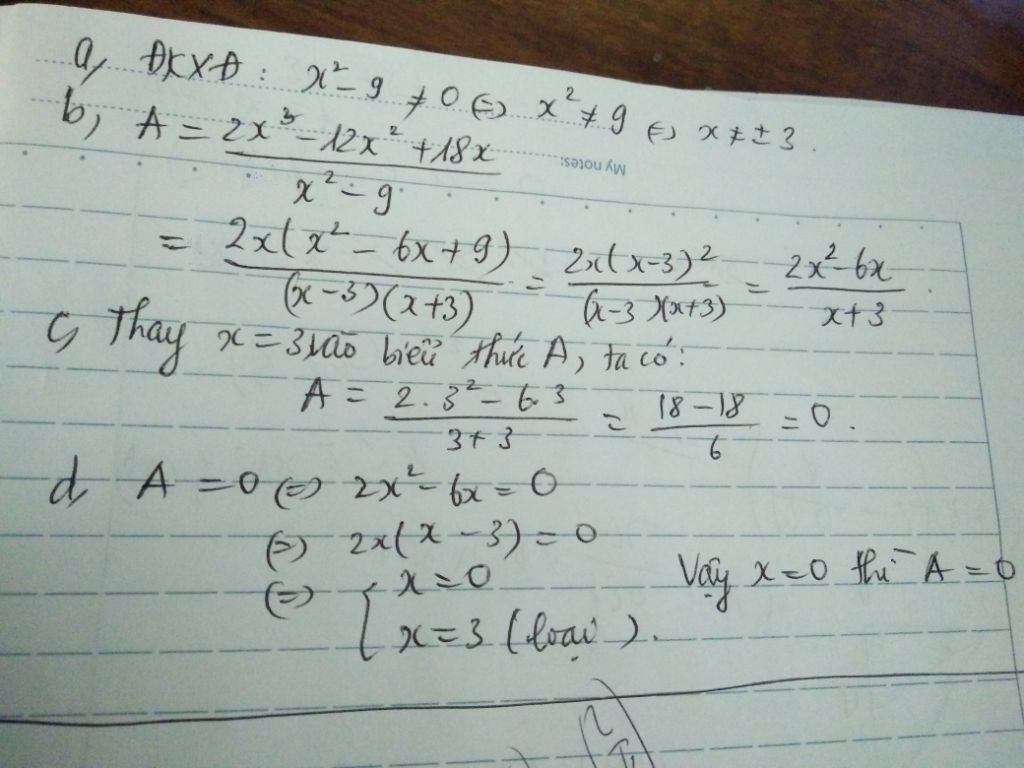 a, ĐKXĐ: x² - 9 ≠ 0 ⇔ x² ≠ 9 ⇔ x ≠ ± 3.
b, A = (2x³ - 12x² + 18x)/(x² - 9)
My notes:
= 2x(x² - 6x + 9)/((x-3)(x+3)) = 2x(x-3)²/((x-3)(x+3)) = (2x² - 6x)/(x+3).
c, Thay x = 3 vào biểu thức A, ta có:
A = (2.3² - 6.3)/(3+3) = (18-18)/6 = 0.
d, A = 0 ⇔ 2x² - 6x = 0
⇔ 2x(x - 3) = 0
⇔ [ x = 0 Vậy x = 0 thì A = 0
x = 3 (loại).